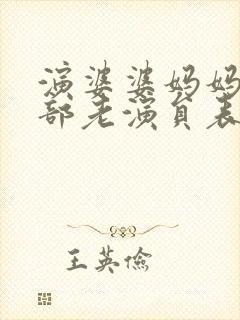 演婆婆妈妈
部老演员表
王英俭